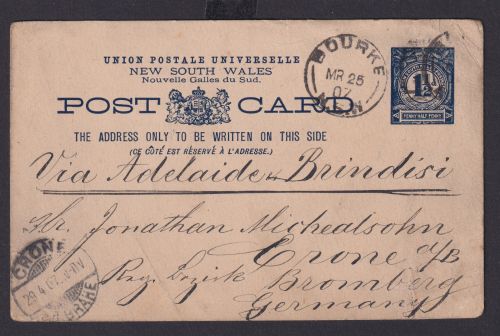 UNION POSTALE UNIVERSELLE
NEW SOUTH WALES
Nouvelle Galles du Sud.
POST CARD
THE ADDRESS ONLY TO BE WRITTEN ON THIS SIDE
(CE CÔTÉ EST RÉSERVÉ À L'ADRESSE.)
BOURKE
MR 25
07
N.S.W
1½
PENNY HALF PENNY
Via Adelaide & Brindisi
Hr. Jonathan Michealsohn
Crone a/B
Reg. Bezirk Bromberg
Germany
CRONE
29 4 07
BRAHE